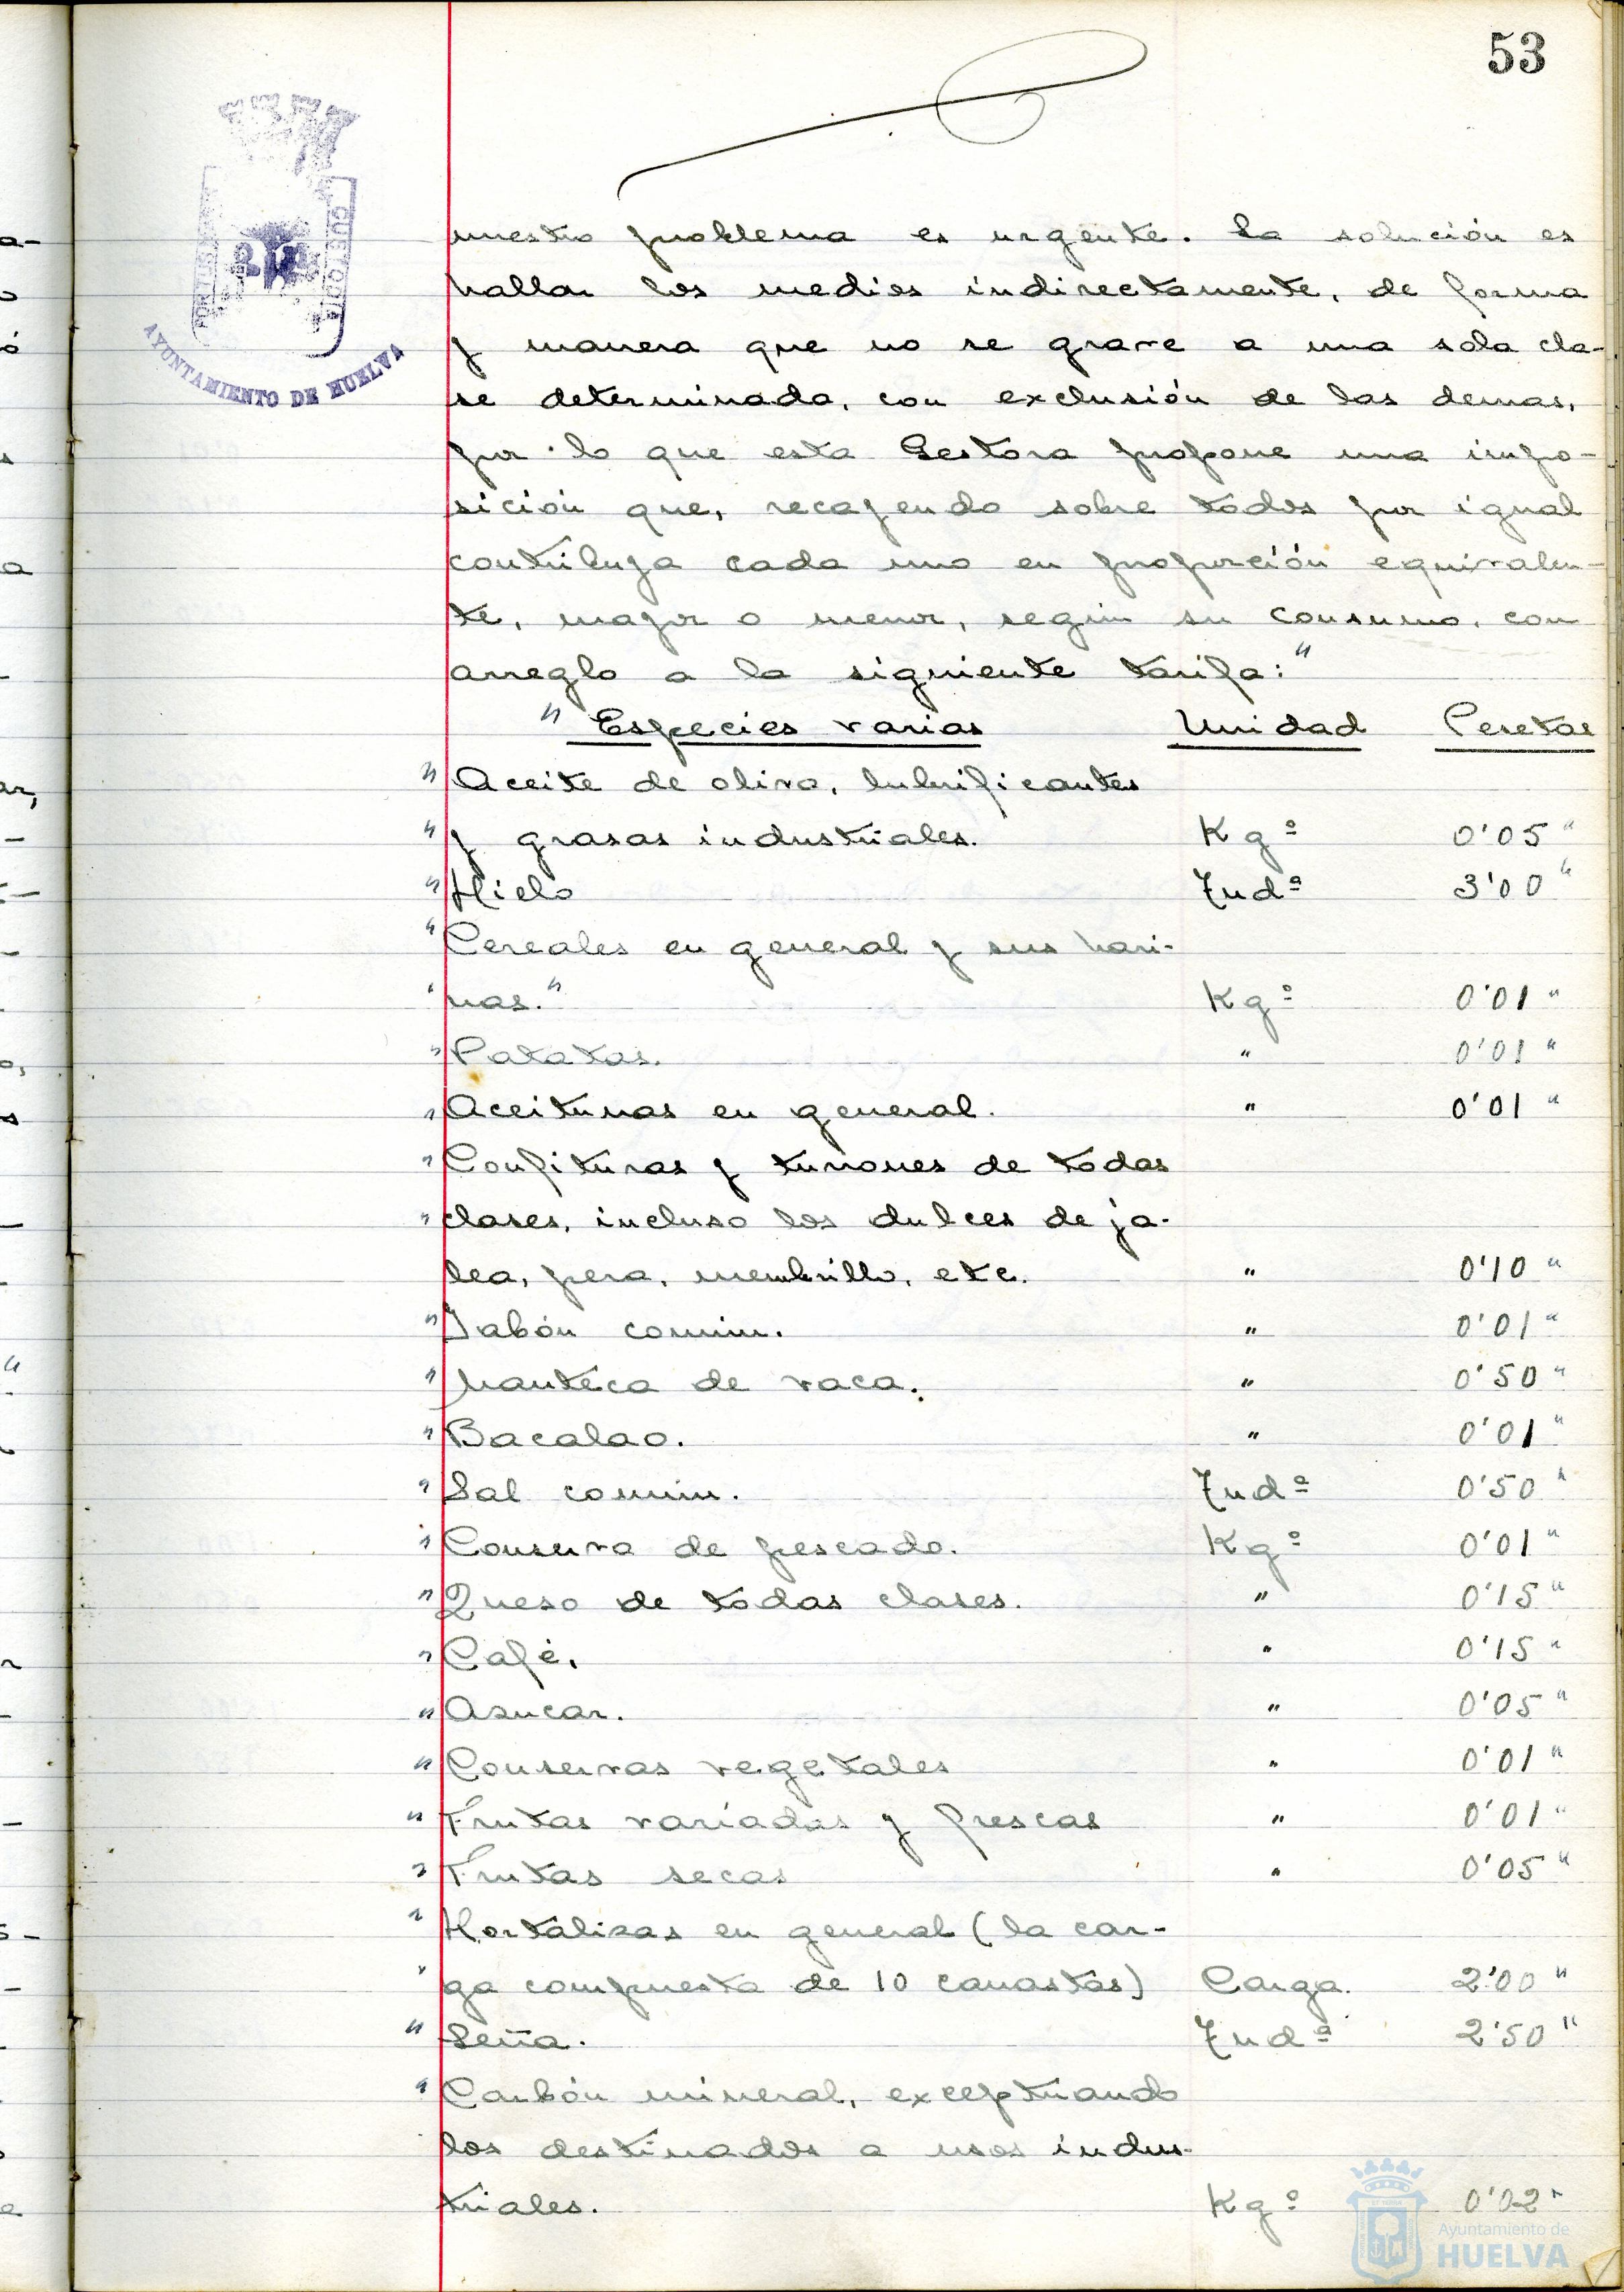 53
PORTUS MARIS ET TERRÆ CUSTODIA
AYUNTAMIENTO DE HUELVA
nuestro problema es urgente. La solución es
hallar los medios indirectamente, de forma
y manera que no se grave a una sola cla-
se determinada, con exclusión de las demas,
por lo que esta Gestora propone una impo-
sición que, recayendo sobre todos por igual
contribuya cada uno en proporción equivalen-
te, mayor o menor, según su consumo, con
arreglo a la siguiente tarifa:"
" Especies varias Unidad Pesetas
" Aceite de oliva, lubrificantes
" y grasas industriales. Kgº 0'05 "
" Hielo Tndª 3'00 "
" Cereales en general y sus hari-
" nas." Kgº 0'01 "
" Patatas. " 0'01 "
" Aceitunas en general. " 0'01 "
" Confituras y turrones de todas
" clases, incluso los dulces de ja-
lea, pera, membrillo, etc. " 0'10 "
" Jabón común. " 0'01 "
" Manteca de vaca. " 0'50 "
" Bacalao. " 0'01 "
" Sal común. Tndª 0'50 "
" Conserva de pescado. Kgº 0'01 "
" Queso de todas clases. " 0'15 "
" Café. " 0'15 "
" Asucar. " 0'05 "
" Conservas vegetales " 0'01 "
" Frutas variadas y frescas " 0'01 "
" Frutas secas " 0'05 "
" Hortalizas en general (la car-
" ga compuesta de 10 canastas) Carga. 2'00 "
" Leña. Tndª 2'50 "
" Carbón mineral, exceptuando
los destinados a usos indus-
triales. Kgº 0'02 "
Ayuntamiento de
HUELVA